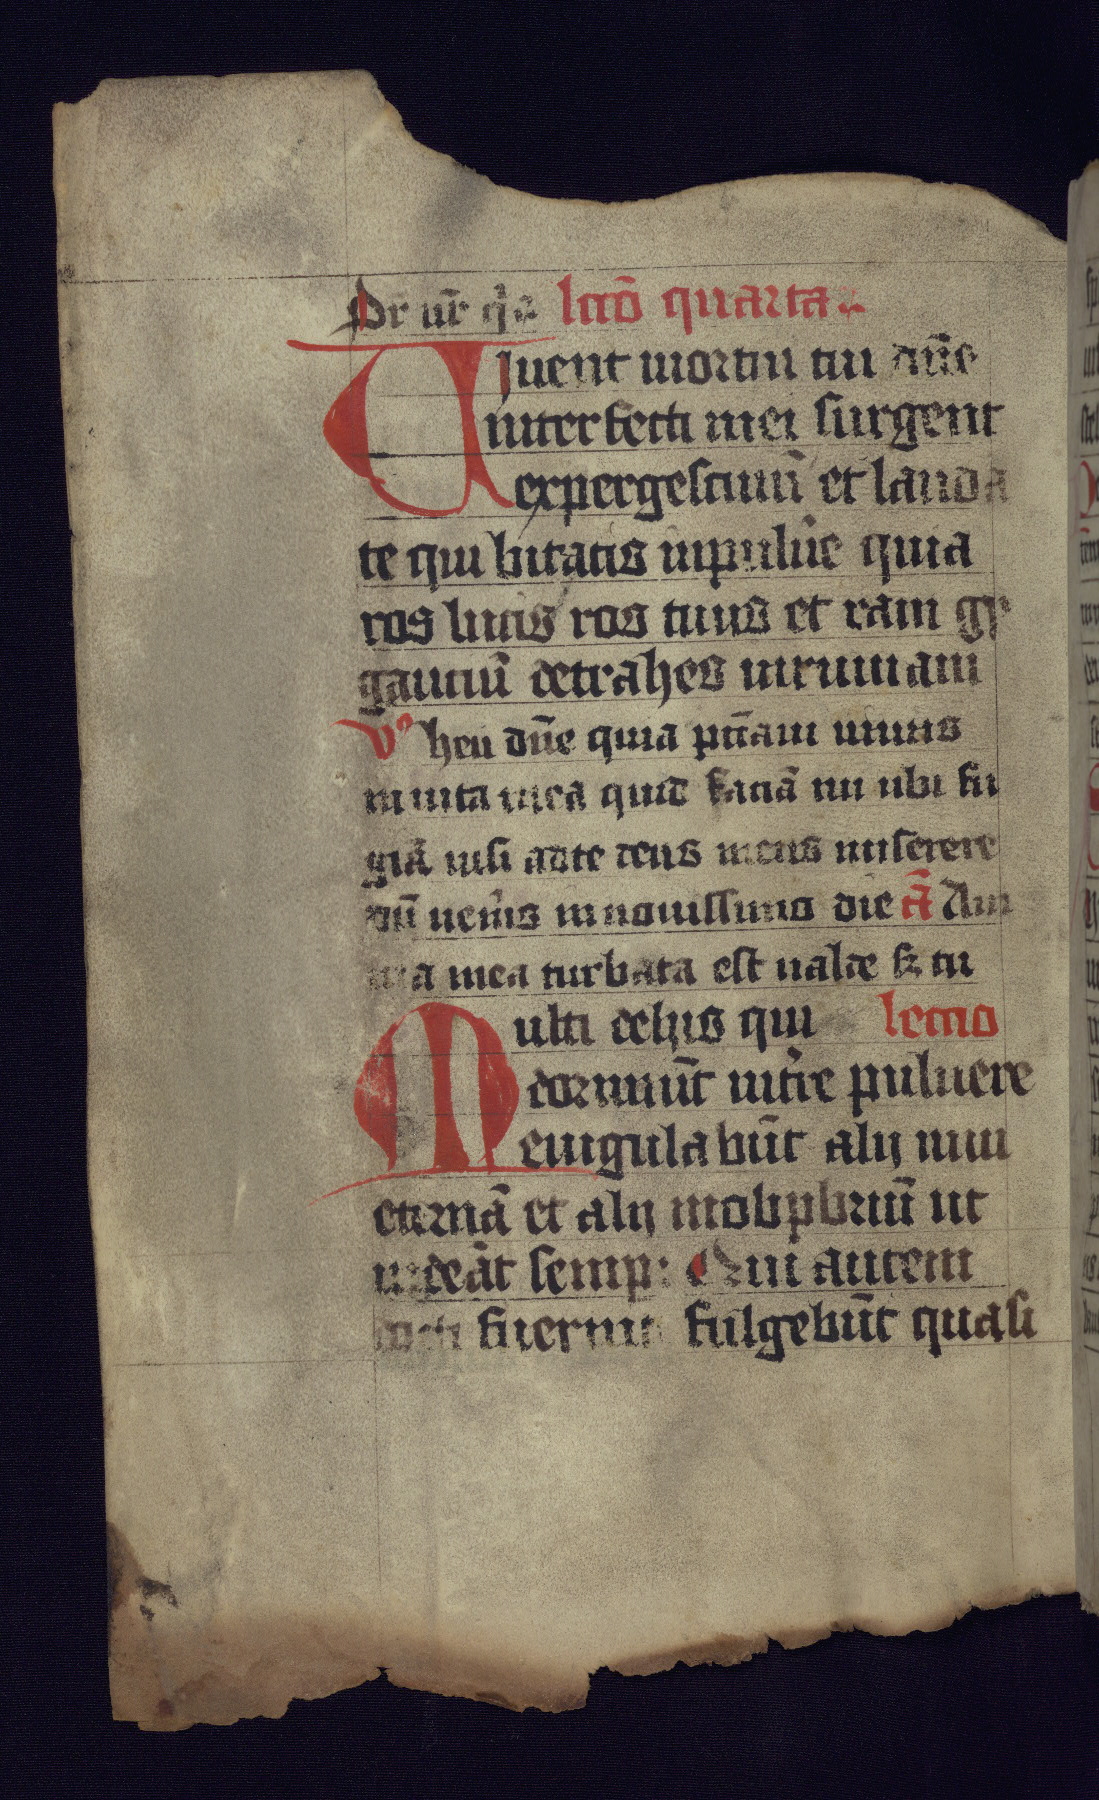 Pr nr̄ q̇ ē lcc̄o quarta
Viuent mortui tui dn̄e
interfecti mei surgent
expergescimī et lauda
te qui bitatis inpuluē quia
ros lucis ros tuus et ram gy
ganciū detrahes inruinam
v° heu dn̄e quia pcc̄aui nimis
in uita mea quid faciā mi ubi fu
giā nisi adte deus meus miserere
dū uen̄is innouissimo die cā̄ Ani
ma mea turbata est ualde sz tu
Multi delijs qui lectio
dormiūt int̄re puluere
euigulabūt alij inui
eternā et alij inobpbriū ut
uideāt semp: Qui autem
docti fuerint fulgebūt quasi